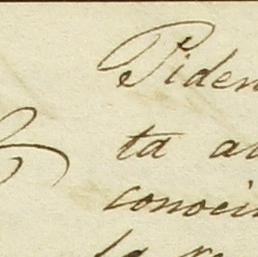 Piden
ta a
conoci
la